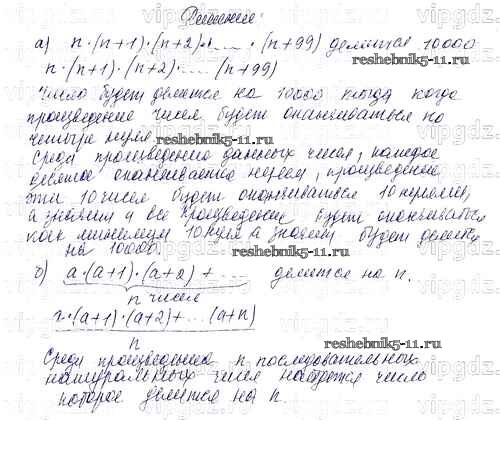 Решение:
а) n·(n+1)·(n+2)·.... ·(n+99) делится 10000
reshebnik5-11.ru
n·(n+1)·(n+2)·.... (n+99)
Число будет делится на 10000 когда когда
произведение чисел будет оканчиваться на
четыре нуля
reshebnik5-11.ru
Среди произведение данных чисел, каждое
десятое оканчивается нулем, произведение
эти 10 чисел будет оканчиваться 10 нулями,
а значит и все произведение будет оканчиваться
как минимум 10 нул а значит будет делится
на 10000.
reshebnik5-11.ru
б) a·(a+1)·(a+2)+.... делится на n.
n чисел
·(a+1)·(a+2)+... (a+n)
n
reshebnik5-11.ru
Среди произведения n последовательных
натуральных чисел найдется число
которое делится на n.
vipgdz.